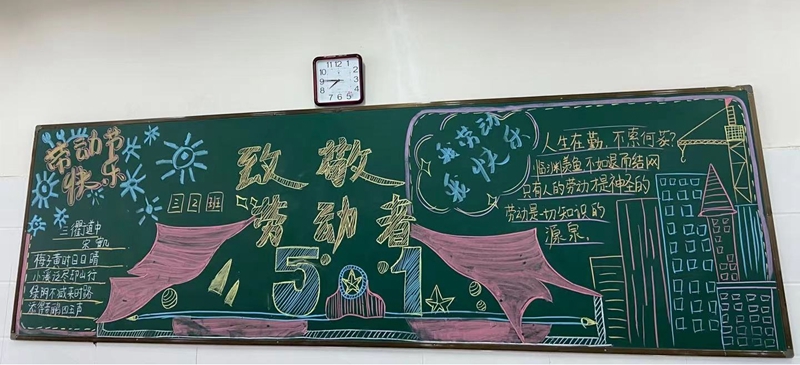 劳动节
快乐
三衢道中
宋 曾几
梅子黄时日日晴
小溪泛尽却山行
绿阴不减来时路
添得黄鹂四五声
三2班
致敬
劳动者
5.1
我劳动
我快乐
人生在勤，不索何获？
临渊羡鱼不如退而结网
只有人的劳动才是神圣的
劳动是一切知识的
源泉。
11 12 1
10 2
9 3
8 4
7 6 5